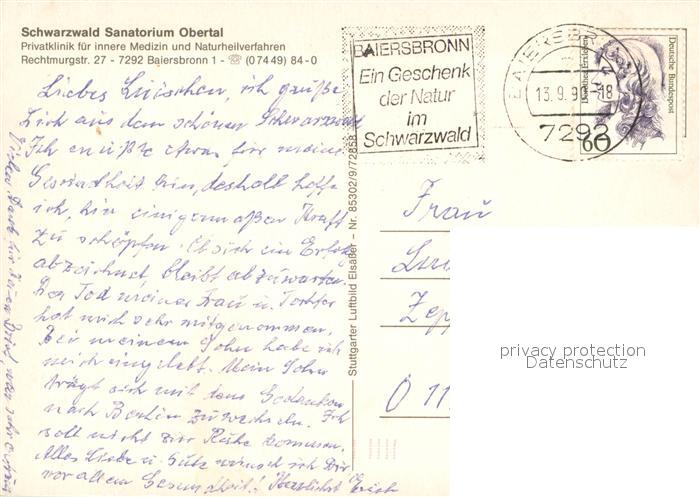 Schwarzwald Sanatorium Obertal
Privatklinik für innere Medizin und Naturheilverfahren
Rechtmurgstr. 27 - 7292 Baiersbronn 1 - ☏ (07449) 84-0
Liebes Luischen, ich grüße
Dich aus dem schönen Schwarzwald
Ich mußte etwas für meine
Gesundheit tun, deshalb hoffe
ich, hier einigermaßen Kraft
zu schöpfen. Ob sich ein Erfolg
abzeichnet, bleibt abzuwarten.
Der Tod meiner Frau u. Tochter
hat mich sehr mitgenommen.
Bei meinem Sohn habe ich
mich eingelebt. Mein Sohn
trägt sich mit dem Gedanken,
nach Berlin zu wechseln. Ich
soll nicht zur Ruhe kommen.
Alles Liebe u. Gute wünsch ich Dir
vor allem Gesundheit! Herzlichst Erich
Vielen Dank für Deinen Brief, war sehr
Stuttgarter Luftbild Elsäßer – Nr. 85302/9/72858
BAIERSBRONN
Ein Geschenk
der Natur
im
Schwarzwald
BAIERSBR
13.9.9 -18
7292
Deutsche Bundespost
60
Frau
Lui
Zepp
O 11
privacy protection
Datenschutz